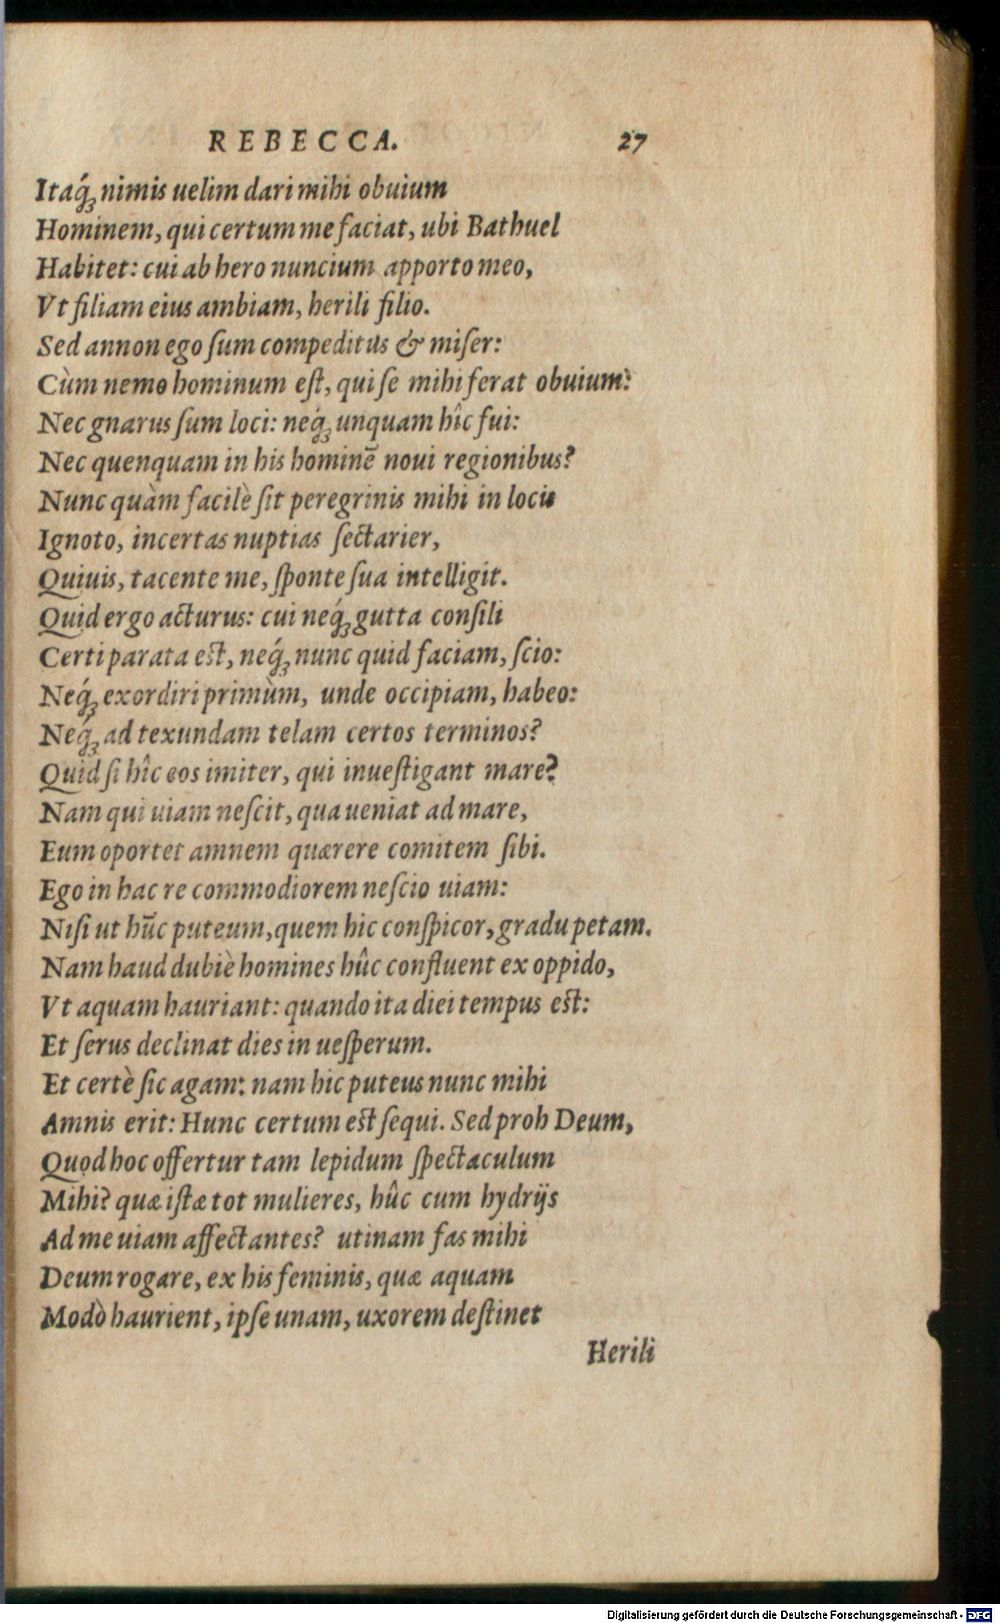 REBECCA. 27
Itaq́ꝫ nimis uelim dari mihi obuium
Hominem, qui certum me faciat, ubi Bathuel
Habitet: cui ab hero nuncium apporto meo,
Vt filiam eius ambiam, herili filio.
Sed annon ego ſum compeditus & miſer:
Cùm nemo hominum eſt, qui ſe mihi ferat obuium?
Nec gnarus ſum loci: neq́ꝫ unquam hîc fui:
Nec quenquam in his hominē noui regionibus?
Nunc quàm facilè ſit peregrinis mihi in locis
Ignoto, incertas nuptias ſectarier,
Quiuis, tacente me, ſponte ſua intelligit.
Quid ergo acturus: cui neq́ꝫ gutta conſili
Certi parata eſt, neq́ꝫ nunc quid faciam, ſcio:
Neq́ꝫ exordiri primùm, unde occipiam, habeo:
Neq́ꝫ ad texundam telam certos terminos?
Quid ſi hîc eos imiter, qui inueſtigant mare?
Nam qui uiam neſcit, qua ueniat ad mare,
Eum oportet amnem quærere comitem ſibi.
Ego in hac re commodiorem neſcio uiam:
Niſi ut hūc puteum, quem hic conſpicor, gradu petam.
Nam haud dubiè homines hûc confluent ex oppido,
Vt aquam hauriant: quando ita diei tempus eſt:
Et ſerus declinat dies in ueſperum.
Et certè ſic agam: nam hic puteus nunc mihi
Amnis erit: Hunc certum eſt ſequi. Sed proh Deum,
Quod hoc offertur tam lepidum ſpectaculum
Mihi? quæ iſtæ tot mulieres, hûc cum hydrijs
Ad me uiam affectantes? utinam fas mihi
Deum rogare, ex his feminis, quæ aquam
Modò haurient, ipſe unam, uxorem deſtinet
Herili
Digitalisierung gefördert durch die Deutsche Forschungsgemeinschaft - DFG